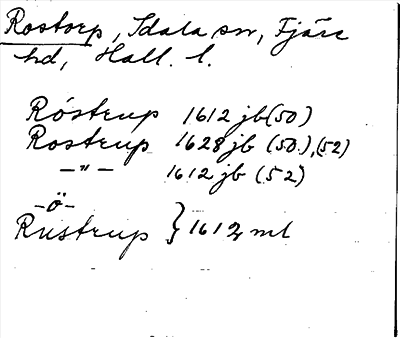 Rostorp, Idala sn, Fjäre
hd, Hall. l.
Röstrup 1612 jb (50)
Rostrup 1628 jb (50), (52)
—"— 1612 jb (52)
-ö-
Rustrup } 1612 ml